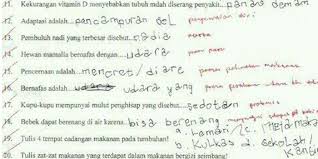 11. Kekurangan vitamin D menyebabkan tubuh mdah diserang penyakit... panas demam
12. Adaptasi adalah ... pencampuran sel penyesuaian diri
13. Pembuluh nadi yang terbesar disebut... radia aorta
14. Hewan mamalia bernafas dengan... udara paru paru
15. Pencernaan adalah... mencret/diare proses
16. Bernafas adalah... udara udara yang proses
17. Kupu-kupu mempunyai mulut penghisap yang disebut... sedotan probosis
18. Bebek dapat berenang di air karena.. bisa berenang
19. Tulis 4 tempat cadangan makanan pada tumbuhan! a. lemari c.
b. kulkas d. sekolah/
20. Tulis zat-zat makanan yang terdapat dalam makanan bergizi seimbang!